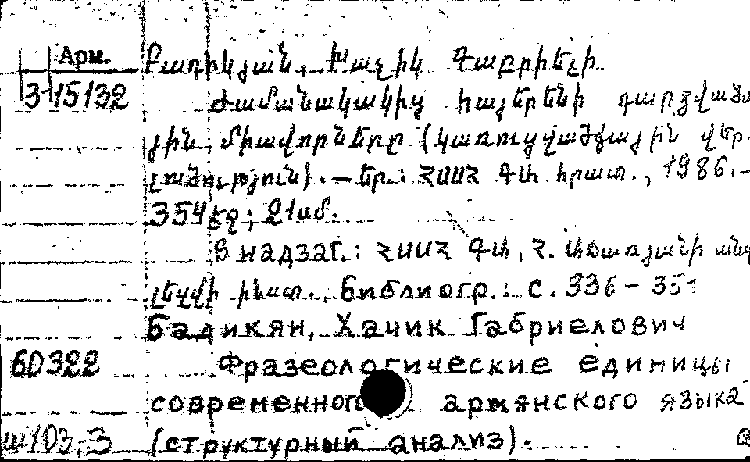 Арм. Բադիկյան, Խաչիկ Գաբրիելի
3-15132 Ժամանակակից հայերենի դարձվածա-
յին միավորները (կառուցվածքային վեր-
լուծություն). — Եր.: ՀՍՍՀ ԳԱ հրատ., 1986.—
354 էջ; 21սմ.
В надзаг.: ՀՍՍՀ ԳԱ, Հ. Աճառյանի անվ.
լեզվի ինստ. Библиогр.: с. 336-351
Бадикян, Хачик Габриелович
60322 Фразеологические единицы
современного армянского языка
103.3 (структурный анализ).